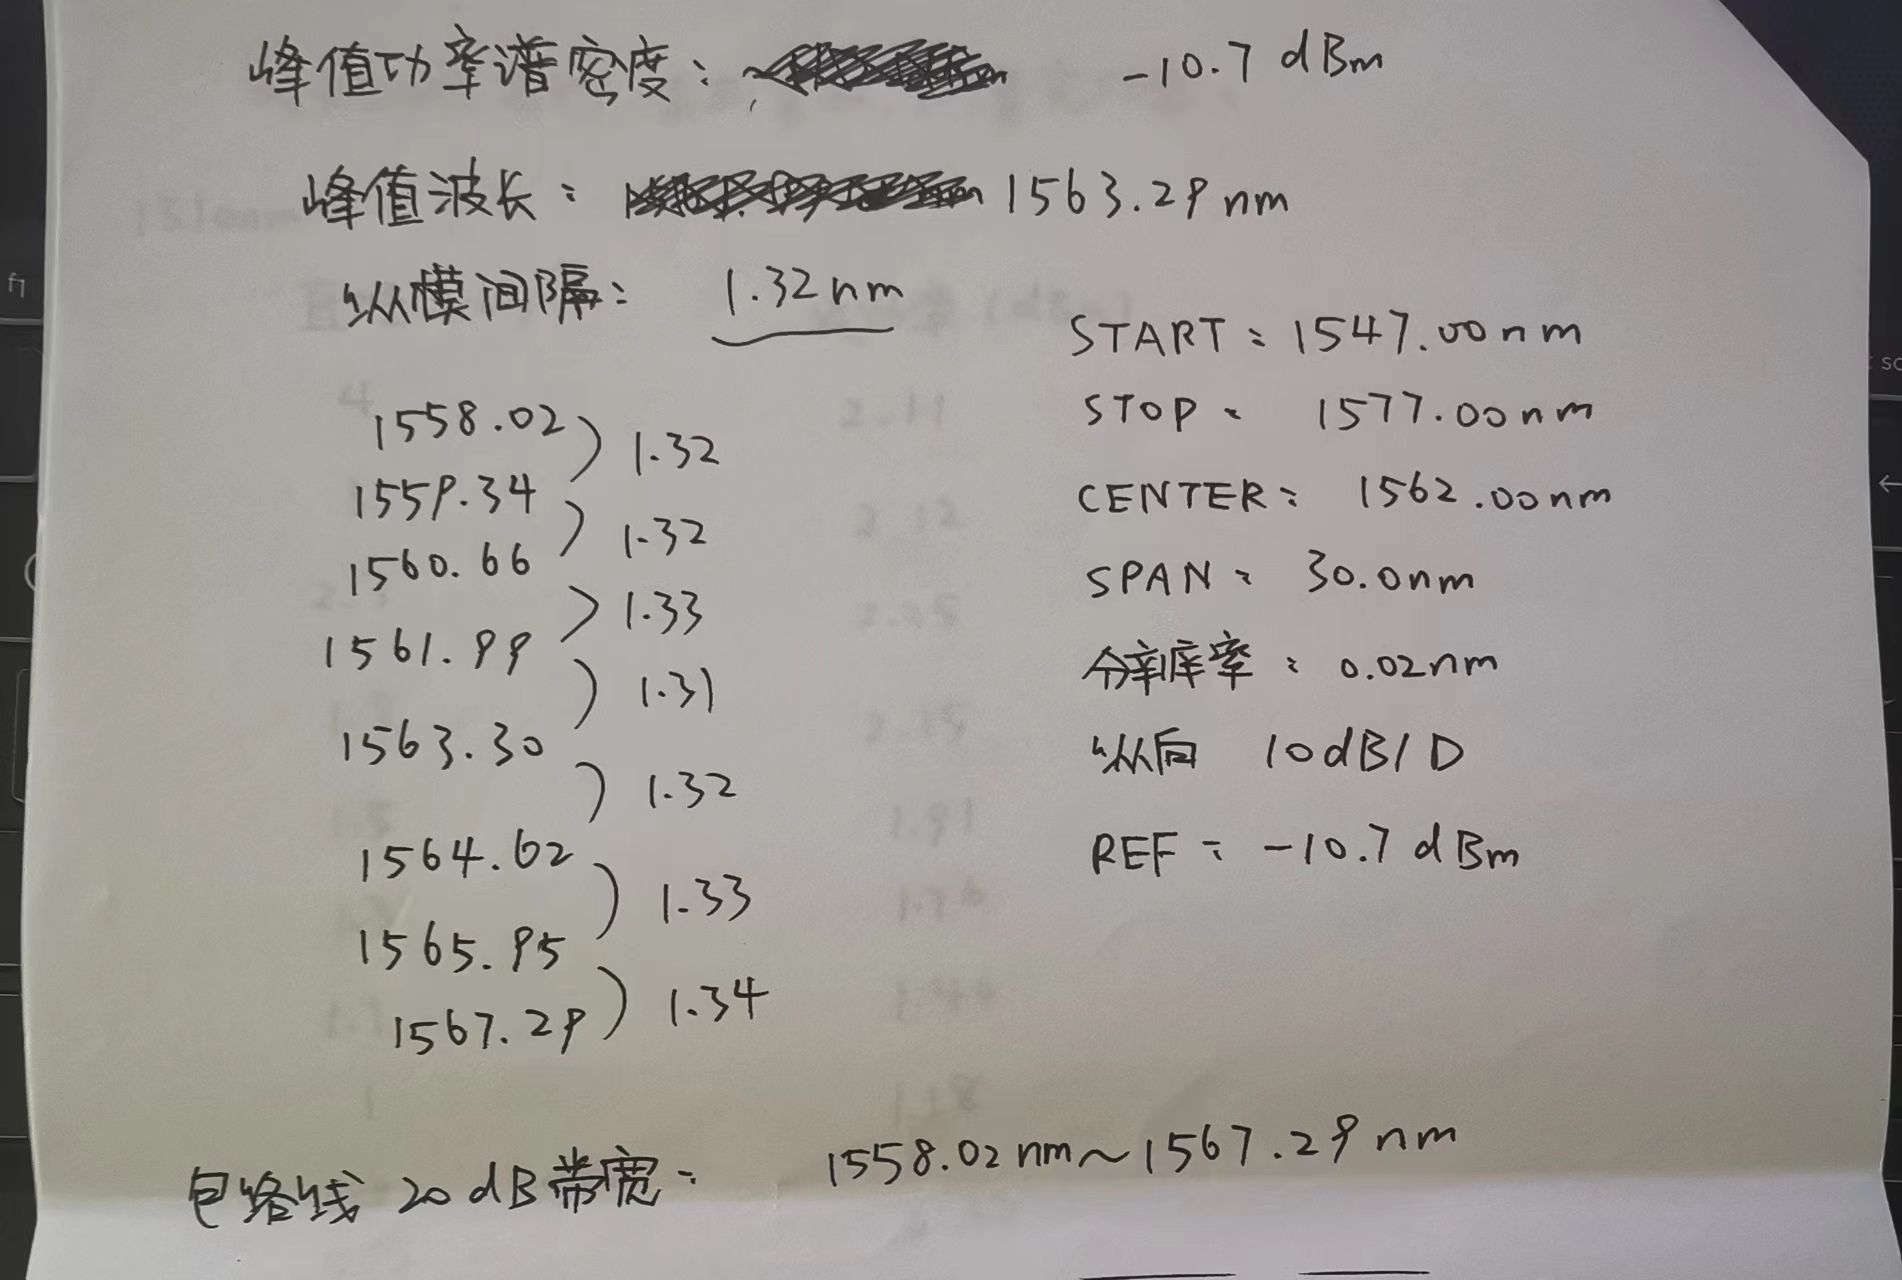 峰值功率谱密度: -10.7 dBm
峰值波长: 1563.29 nm
纵模间隔: 1.32nm
1558.02
1.32
1559.34
1.32
1560.66
1.33
1561.99
1.31
1563.30
1.32
1564.62
1.33
1565.95
1.34
1567.29
START: 1547.00nm
STOP: 1577.00nm
CENTER: 1562.00nm
SPAN: 30.0nm
分辨率: 0.02nm
纵向 10dB/D
REF: -10.7 dBm
包络线 20dB带宽: 1558.02nm~1567.29nm